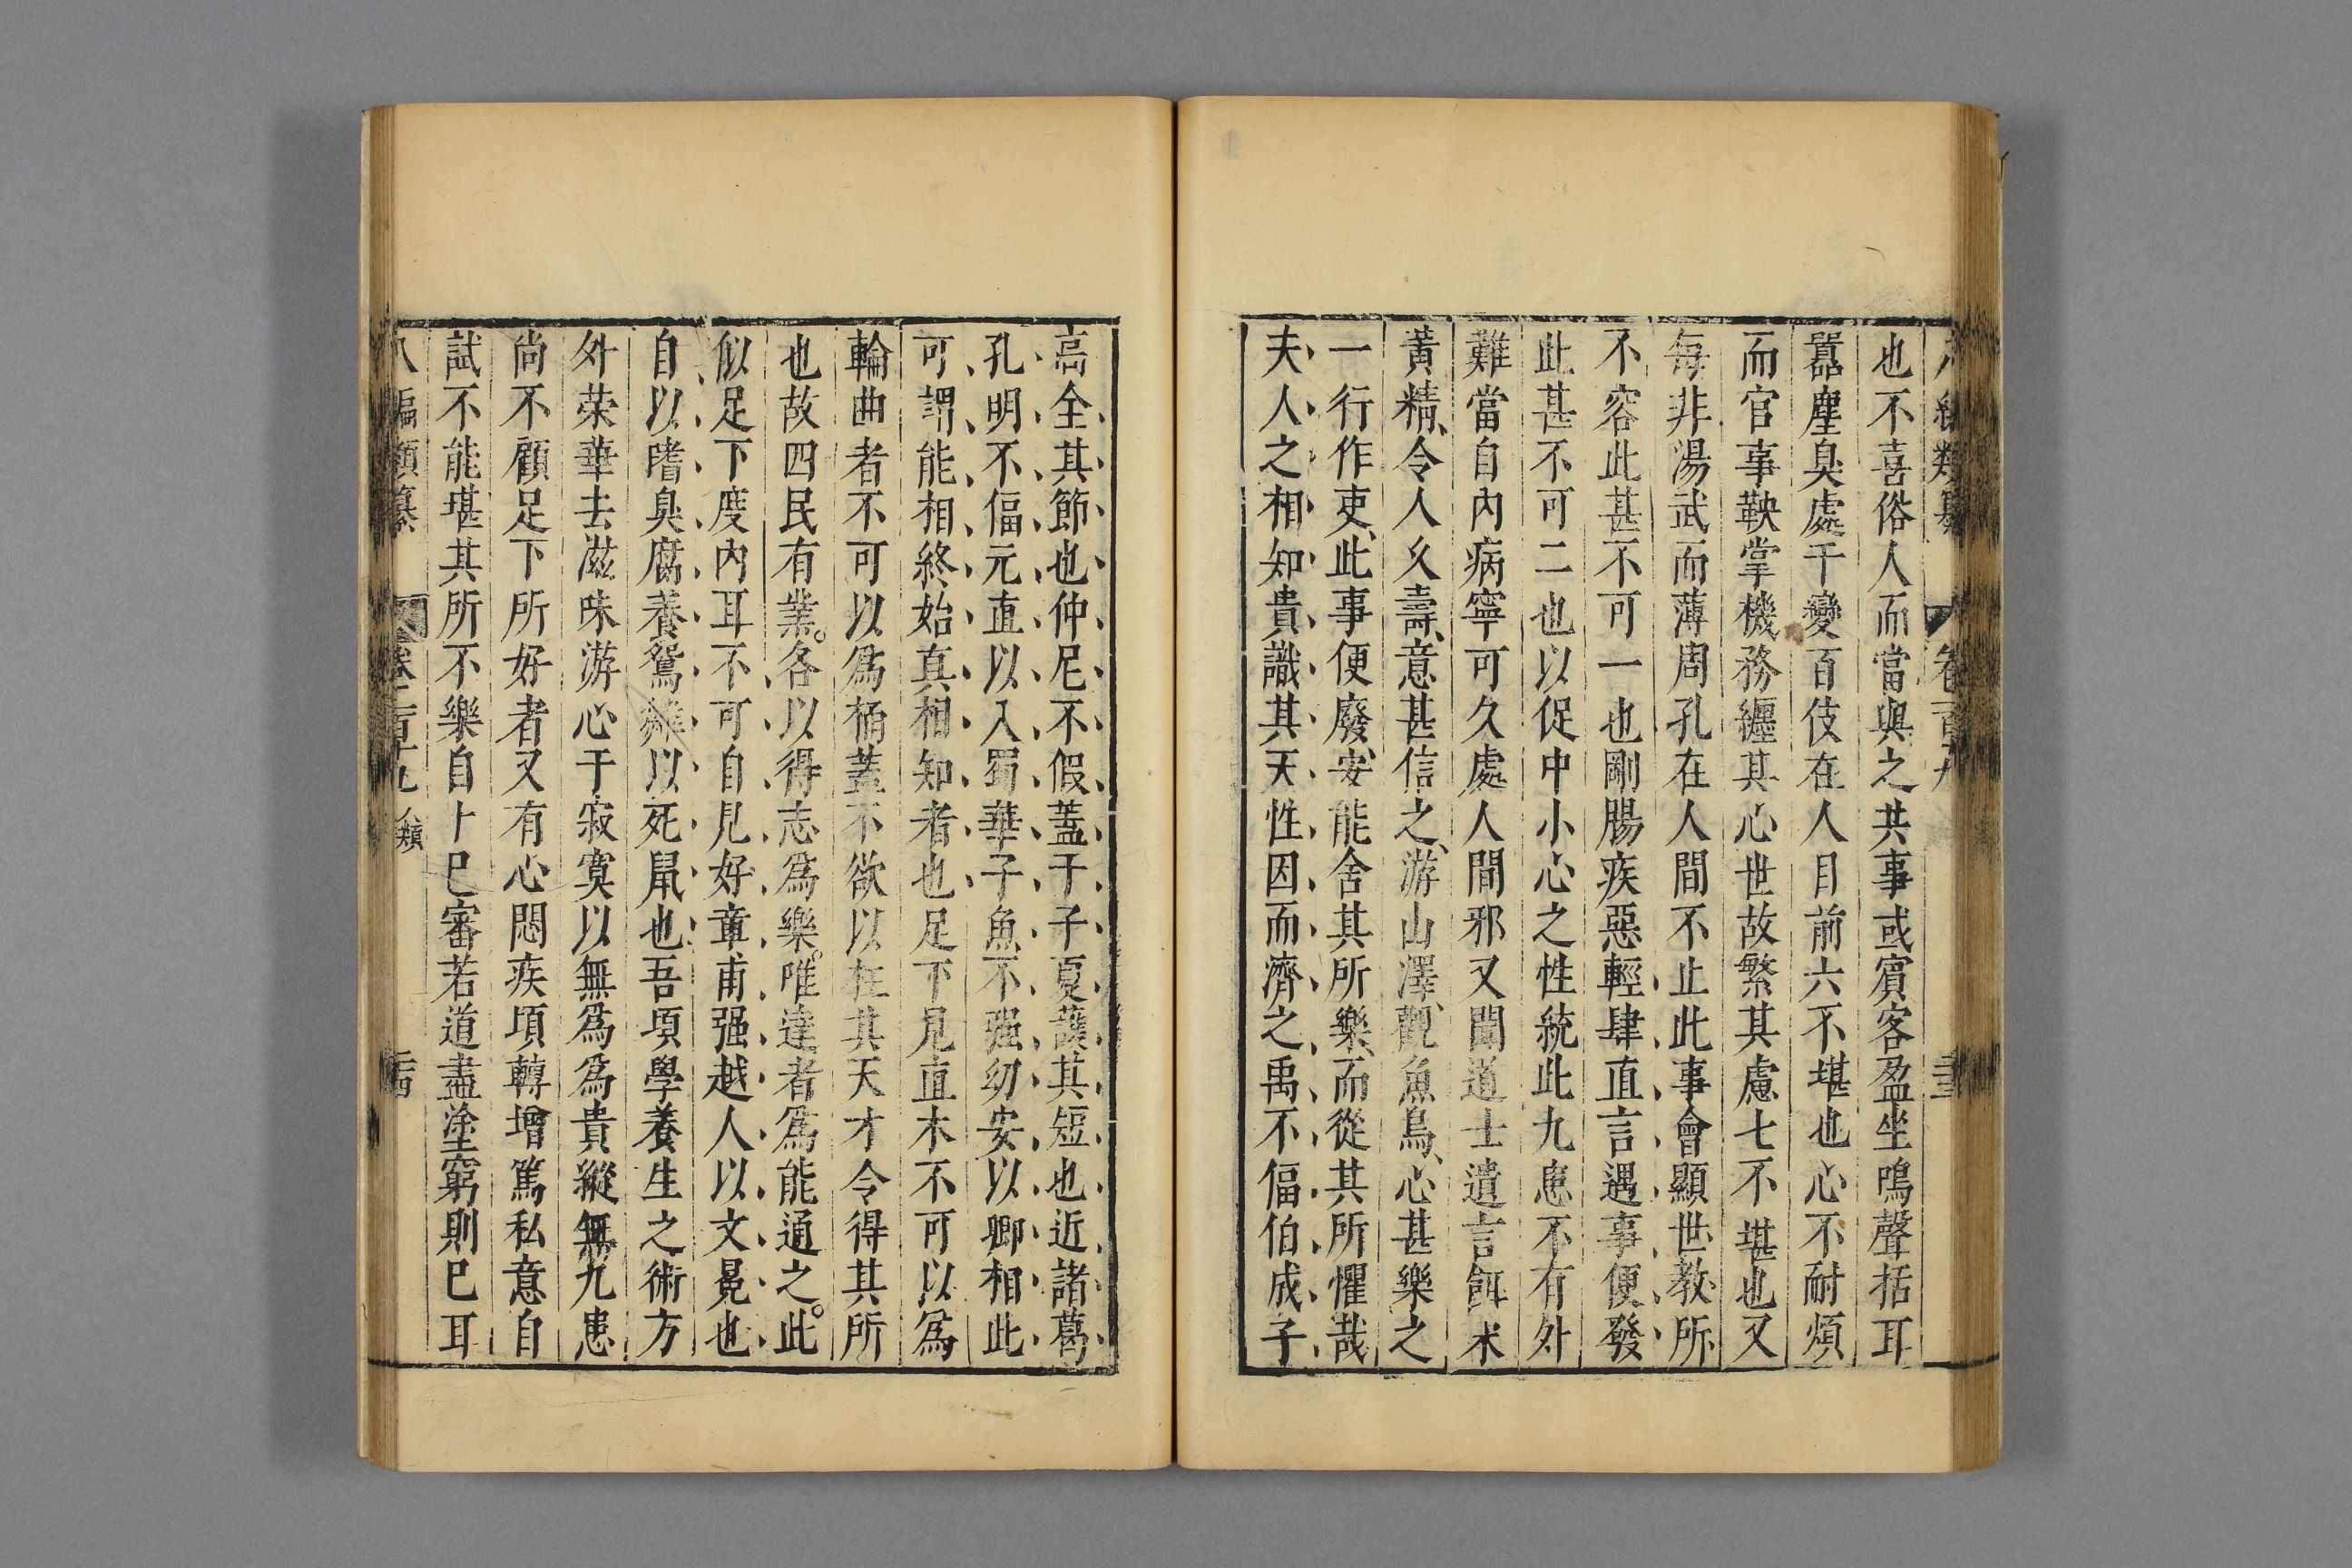 八編類纂 卷二百十九
也不喜俗人而當與之共事或賓客盈坐鳴聲括耳
囂塵臭處千變百伎在人目前六不堪也心不耐煩
而官事鞅掌機務纏其心世故繁其慮七不堪也又
每非湯武而薄周孔在人間不止此事會顯世教所
不容此甚不可一也剛腸疾惡輕肆直言遇事便發
此甚不可二也以促中小心之性統此九患不有外
難當自內病寧可久處人間邪又聞道士遺言餌朮
黃精令人久壽意甚信之游山澤觀魚鳥心甚樂之
一行作吏此事便廢安能舍其所樂而從其所懼哉
夫人之相知貴識其天性因而濟之禹不偪伯成子
高全其節也仲尼不假蓋于子夏護其短也近諸葛
孔明不偪元直以入蜀華子魚不强幼安以卿相此
可謂能相終始真相知者也足下見直木不可以爲
輪曲者不可以爲桷蓋不欲以枉其天才令得其所
也故四民有業。各以得志爲樂。唯達者爲能通之。此
似足下度內耳不可自見好章甫强越人以文冕也
自以嗜臭腐養鴛雛以死鼠也吾頃學養生之術方
外荣華去滋味游心于寂寞以無爲爲貴縱無九患
尚不顧足下所好者又有心悶疾頃轉增篤私意自
試不能堪其所不樂自卜已審若道盡塗窮則已耳
八編類纂 卷二百十九 人類 三十四